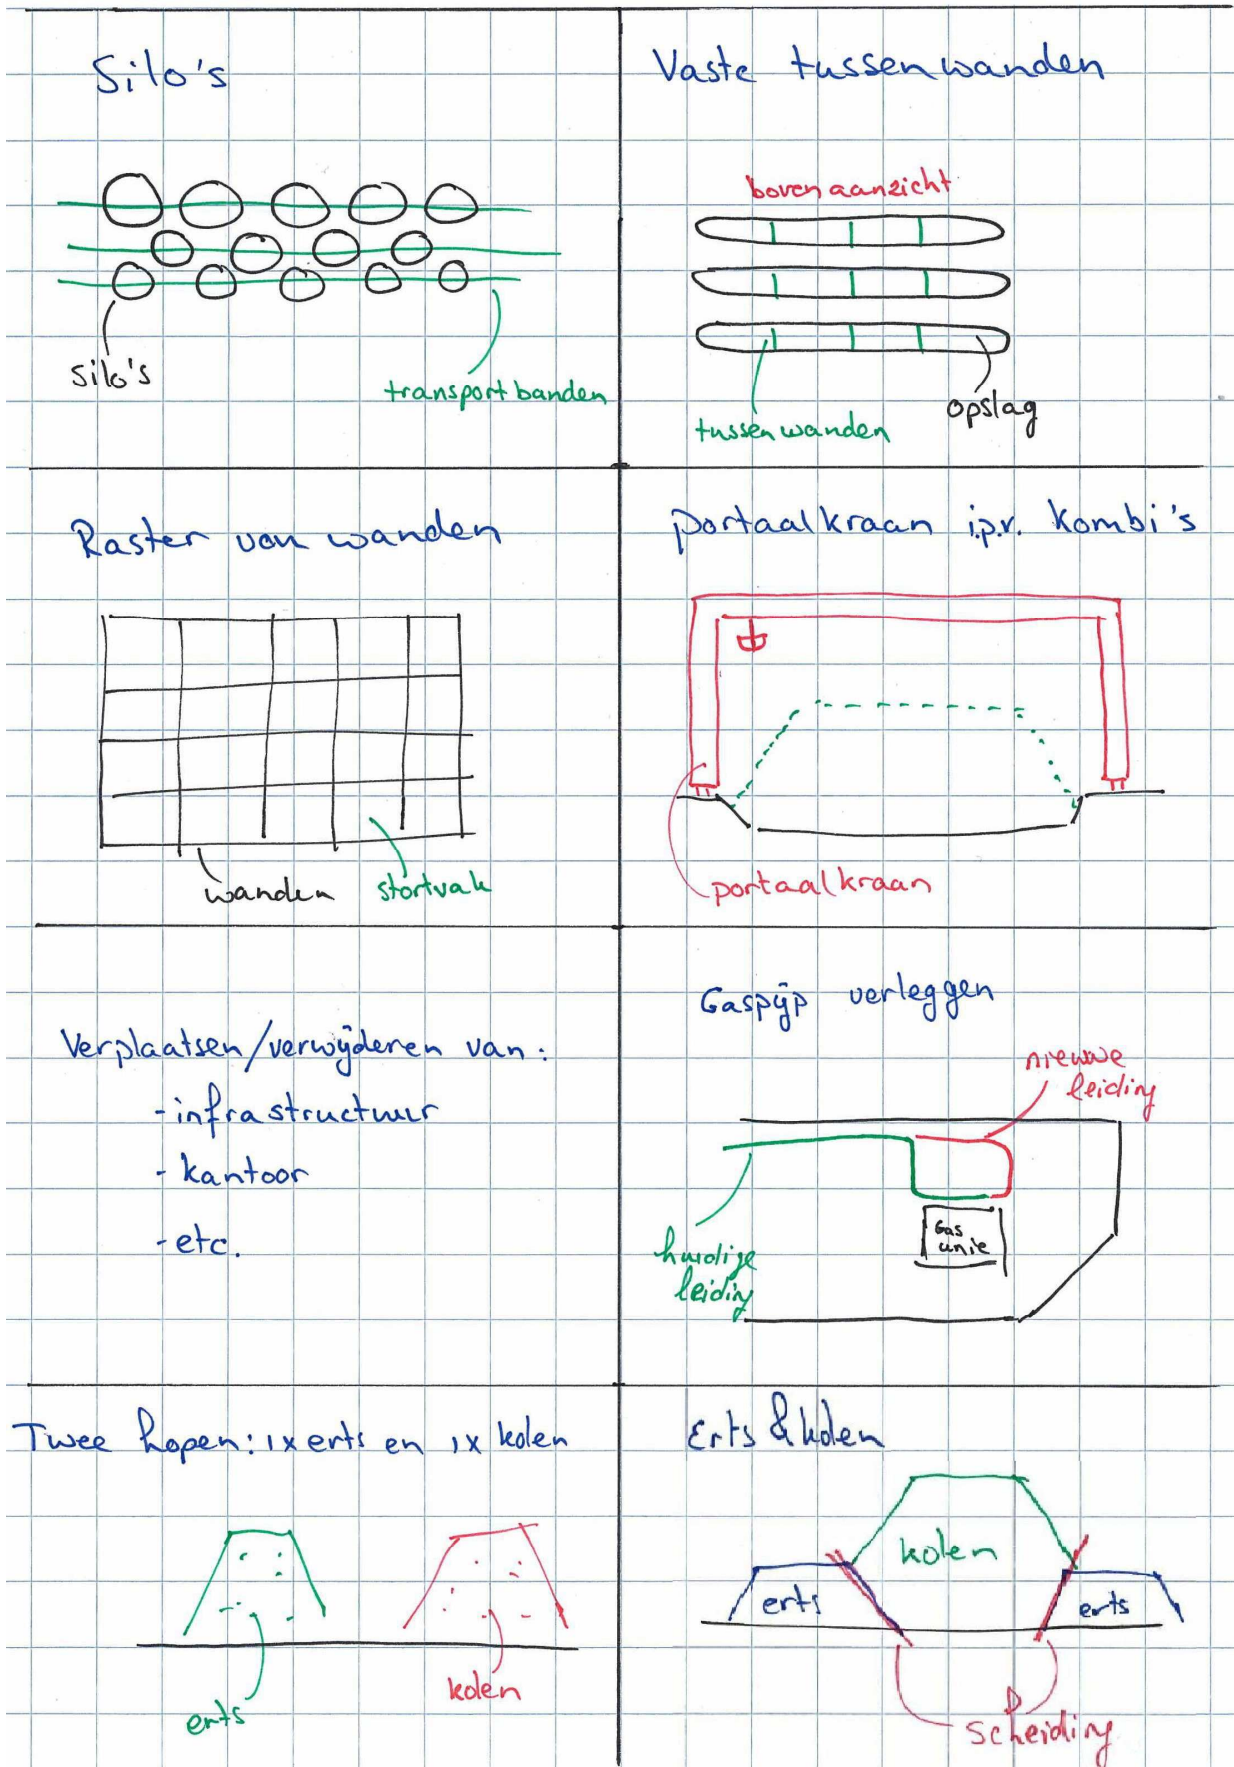 Silo's
silo's
transportbanden
Vaste tussenwanden
bovenaanzicht
tussenwanden
opslag
Raster van wanden
wanden
stortvak
portaalkraan i.p.v. kombi's
portaalkraan
Verplaatsen/verwijderen van:
- infrastructuur
- kantoor
- etc.
Gaspijp verleggen
nieuwe
leiding
huidige
leiding
Gas
unie
Twee hopen: 1x erts en 1x kolen
erts
kolen
Erts & kolen
kolen
erts
erts
scheiding